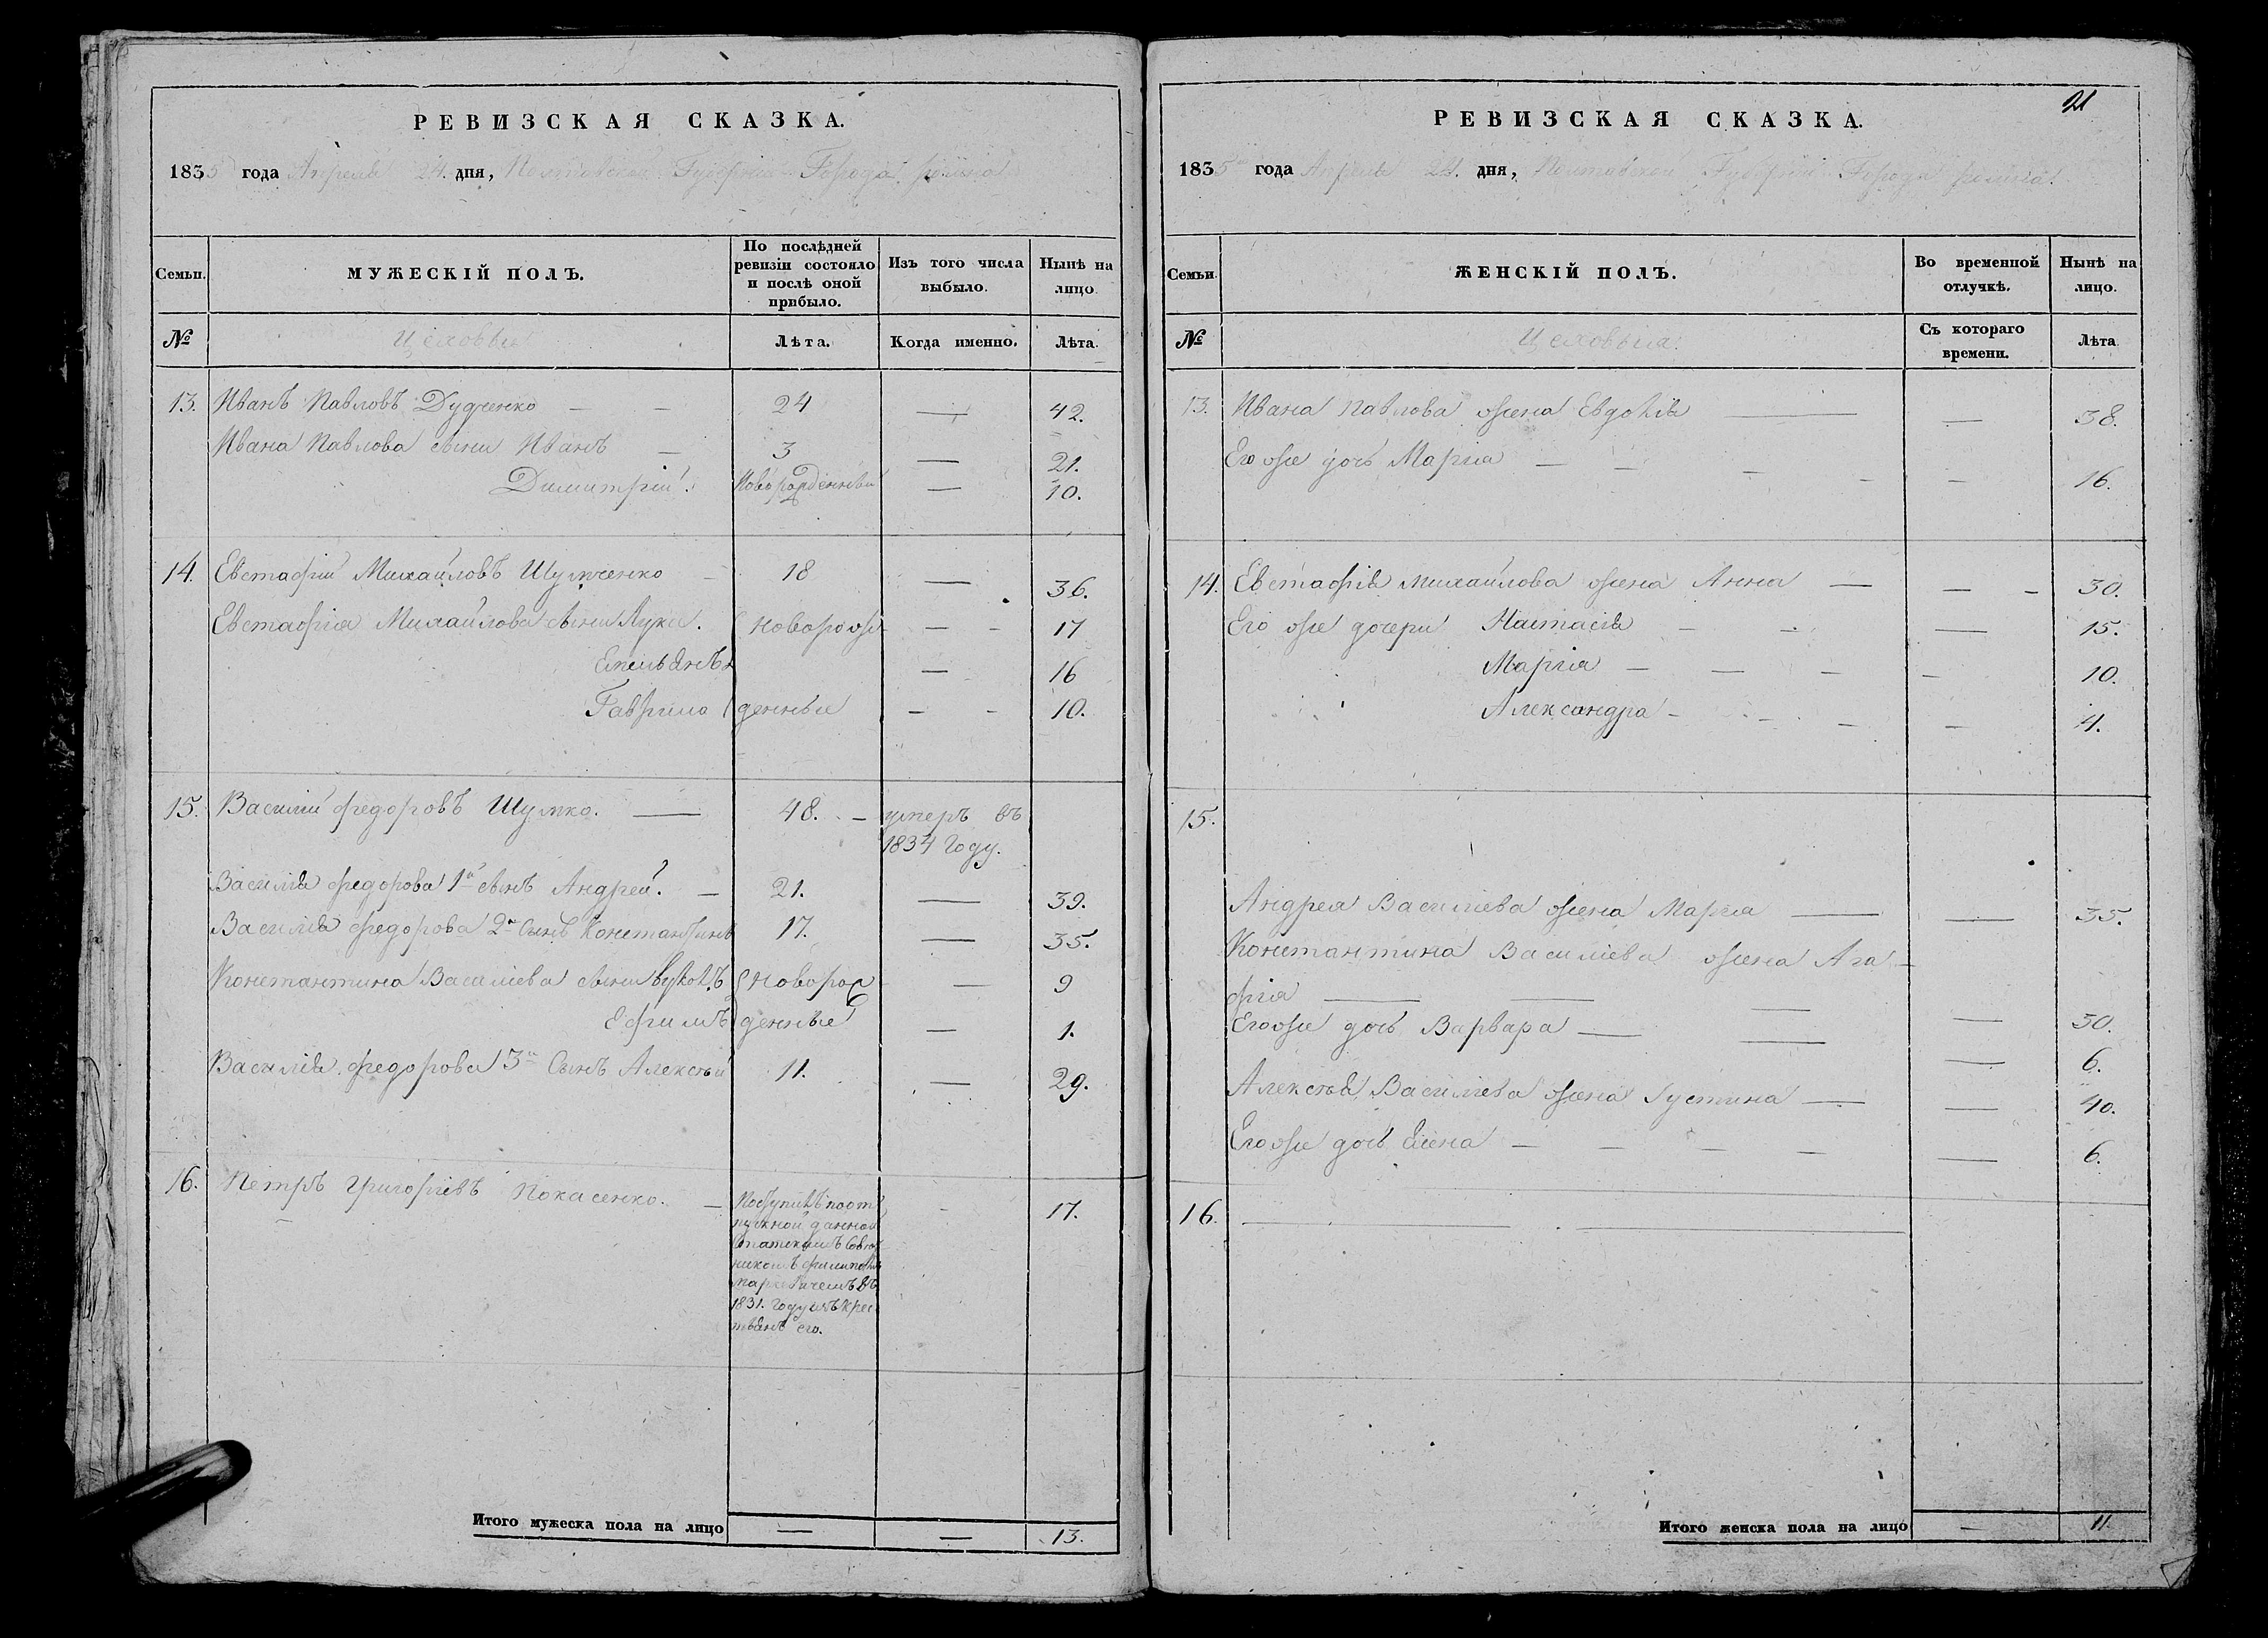 РЕВИЗСКАЯ СКАЗКА.
1835 года Апреля 24 дня, Полтавской Губерніи Города Ромна
Семьи.
МУЖЕСКІЙ ПОЛЪ.
По послѣдней ревизіи состояло и послѣ оной прибыло.
Изъ того числа выбыло.
Нынѣ на лицо.
№
Цеховыя
Лѣта.
Когда именно.
Лѣта.
13. Иванъ Павловъ Дудченко — — 24 — 42.
Ивана Павлова сыни Иванъ — 3 — 21.
Димитрій. Новорожденный — 10.
14. Евстафій Михайловъ Шумченко — 18 — 36.
Евстафія Михайлова сыни Лука. новорож — — 17
Емельянъ — 16
Гаврила денныя — — 10.
15. Василій Федоровъ Шумко. — 48. — умеръ въ
1834 году.
Василія Федорова 1й сынъ Андрей. — 21. — 39.
Василія Федорова 2й Сынъ Константинъ 17. — 35.
Константина Василіева сыни Вуколъ новорож — 9
Ефимъ денные — 1.
Василія Федорова 3й Сынъ Алексѣй 11. — 29.
16. Петръ Григоріевъ Покасенко. — Поступилъ по от — 17.
пускной данной
Статскимъ Совѣт
никомъ Филипомъ
Маркевичемъ въ
1831. году изъ Крес
тьянъ его.
Итого мужеска пола на лицо — — 13.
21
РЕВИЗСКАЯ СКАЗКА.
1835 года Апреля 24. дня, Полтавской Губерніи Города Ромна.
Семьи.
ЖЕНСКІЙ ПОЛЪ.
Во временной отлучкѣ.
Нынѣ на лицо.
№
Цеховыя.
Съ котораго времени.
Лѣта
13. Ивана Павлова жена Евдокія — — 38.
Его же дочь Марія — — — — — 16.
14. Евстафія Михайлова жена Анна — — — 30.
Его же дочери Настасія — — — 15.
Марія — — — — 10.
Александра — — — — 4.
15.
Андрея Василіева жена Марія — — 35.
Константина Василіева жена Ага-
фія — — — — 30.
Его же дочь Варвара — — — 6.
Алексѣя Василіева жена Іустина — — 40.
Его же дочь Елена — — — — — 6.
16. — —
Итого женска пола на лицо — 11